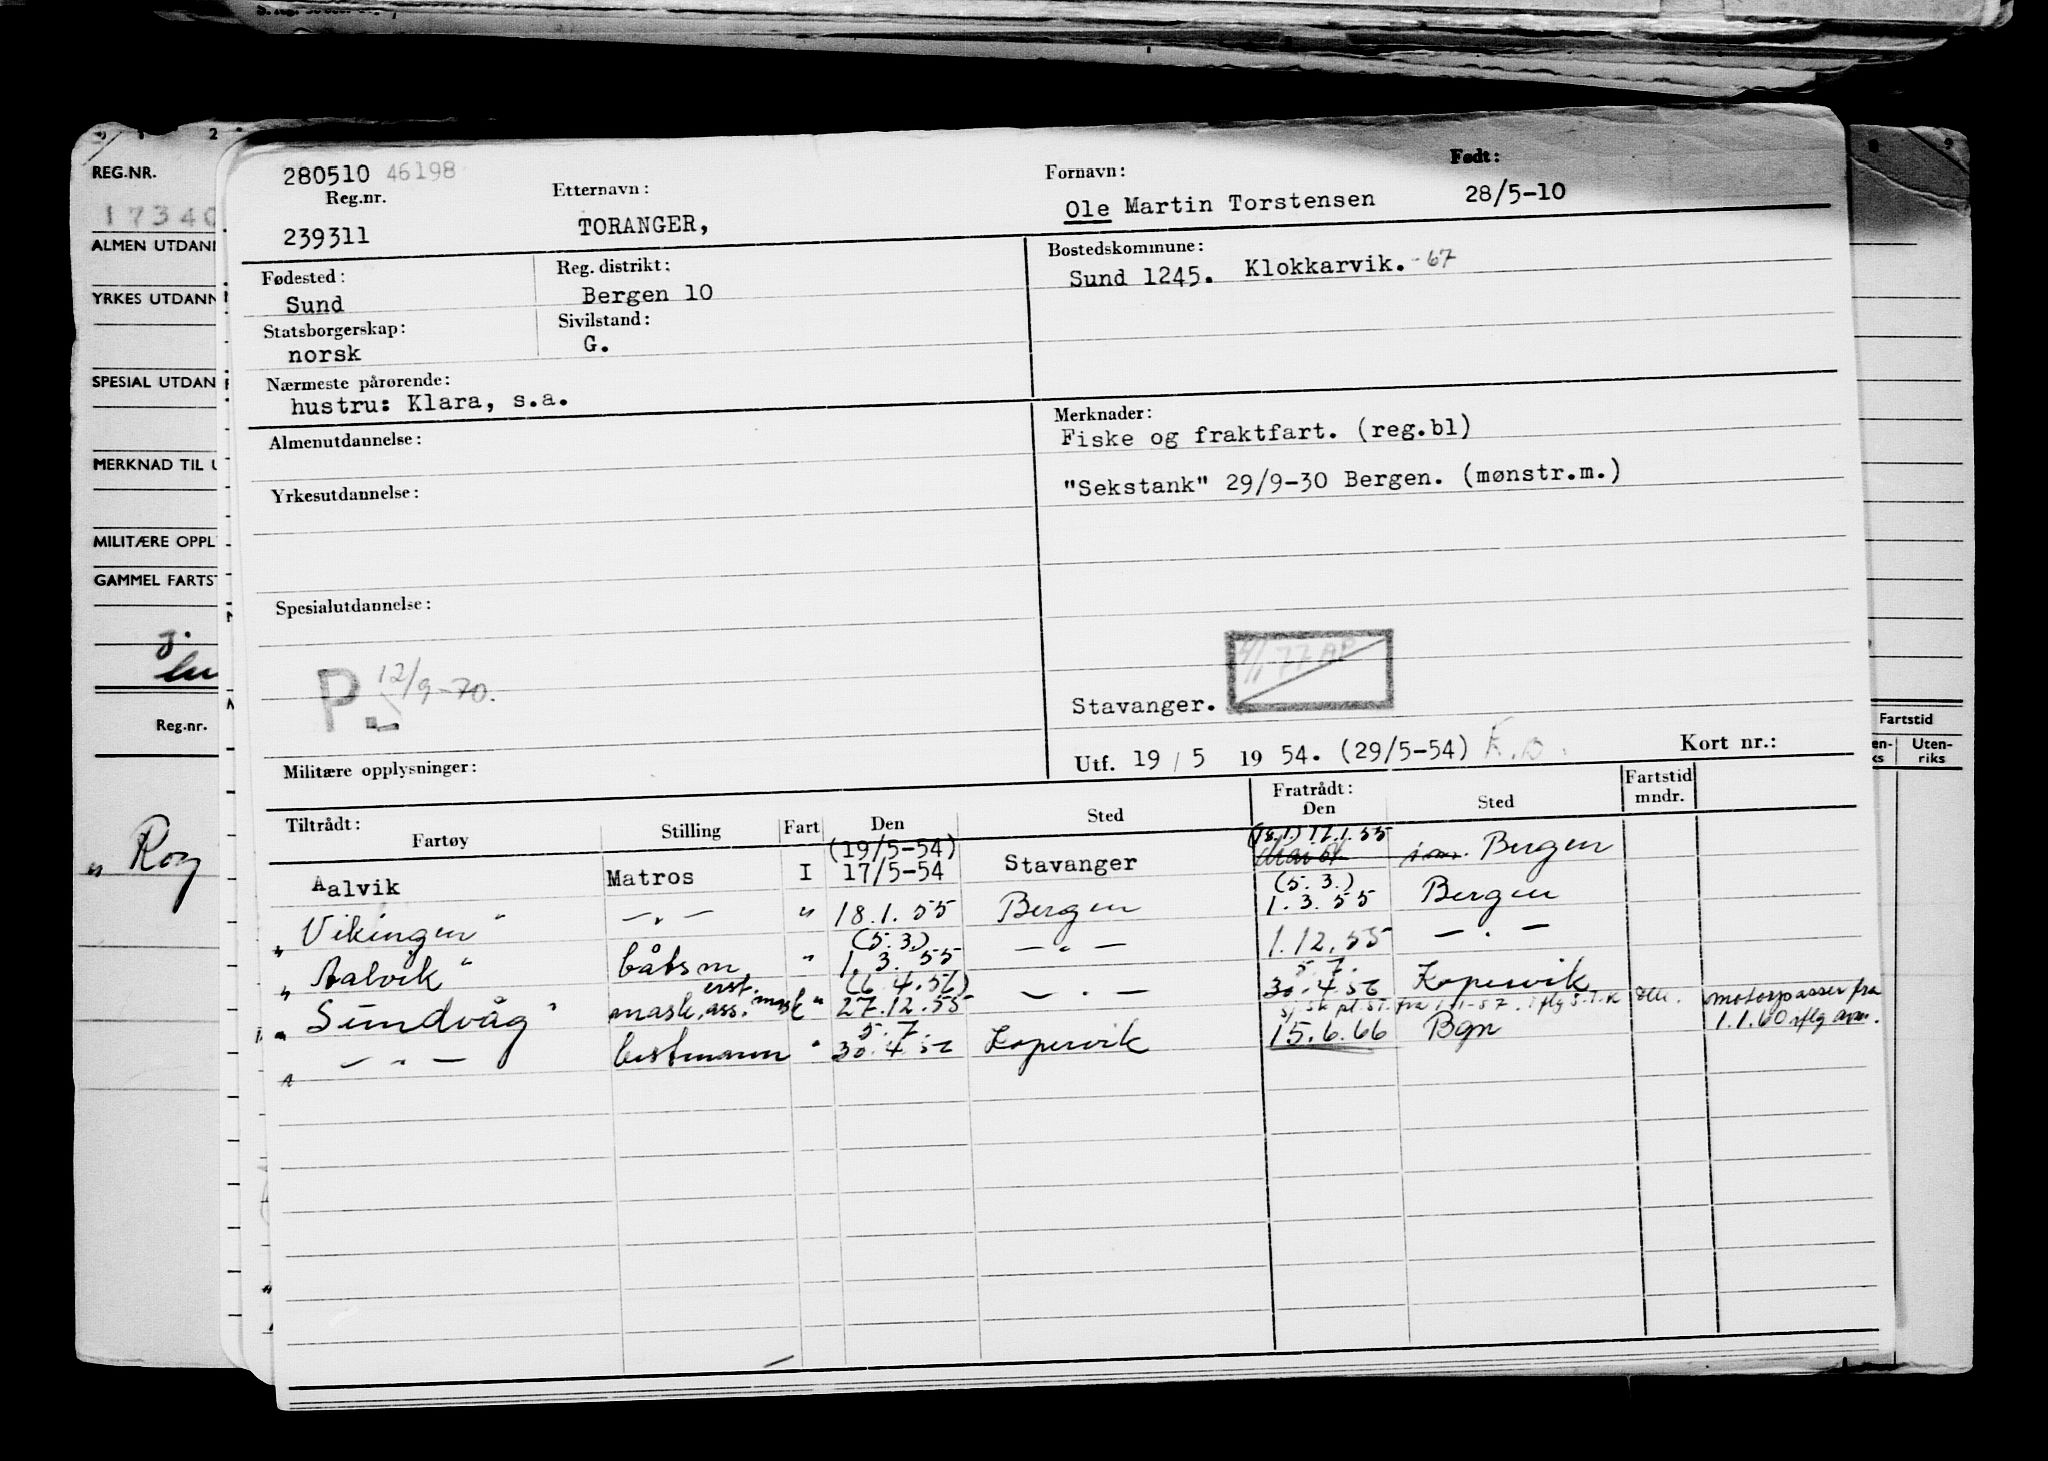 REG.NR.
17340
ALMEN UTDANN
YRKES UTDANN
SPESIAL UTDAN
MERKNAD TIL U
MILITÆRE OPPL
GAMMEL FARTST
Reg.nr.
" Rog
280510 46198
Reg.nr.
239311
Etternavn:
TORANGER,
Fornavn:
Ole Martin Torstensen
Født:
28/5-10
Fødested:
Sund
Reg. distrikt:
Bergen 10
Bostedskommune:
Sund 1245. Klokkarvik. -67
Statsborgerskap:
norsk
Sivilstand:
G.
Nærmeste pårørende:
hustru: Klara, s.a.
Almenutdannelse:
Yrkesutdannelse:
Spesialutdannelse:
P. 12/9-70.
Militære opplysninger:
Merknader:
Fiske og fraktfart. (reg.bl)
"Sekstank" 29/9-30 Bergen. (mønstr.m.)
77 AP
Stavanger.
Utf. 19 / 5 19 54. (29/5-54)
Kort nr.:
Fartstid
Uten-
riks
Tiltrådt:
Fartøy Stilling Fart Den Sted
Fratrådt:
Den Sted
Fartstid
mndr.
Aalvik Matros I (19/5-54) 17/5-54 Stavanger (18.1.) 17.1.55 Bergen
" Vikingen " — " — " 18.1.55 Bergen (5.3.) 1.3.55 Bergen
" Aalvik " båtsm. " (5.3.) 1.3.55 — " — 1.12.55 — " —
" Sundvåg " mask.ass. " (6.4.56) 27.12.55 — " — 5.7. 30.4.56 Kopervik
motorpasser fra
1.1.60
" — " — bestmann " 5.7. 30.4.56 Kopervik 15.6.66 Bgn